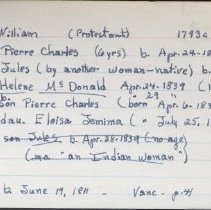 William (Protestant) 1793 c
Pierre Charles (6yrs) b. Apr. 24-18
Jules (by another woman-native) b.
Helene McDonald Apr. 24-1839 (
son Pierre Charles (born Apr. 6-18
dau. Eloisa Jemima ( " July 25, 1
son Jules b. Apr. 28-1839 (no age)
(ma "an Indian woman")
b June 19, 1811 - Vanc. p-41